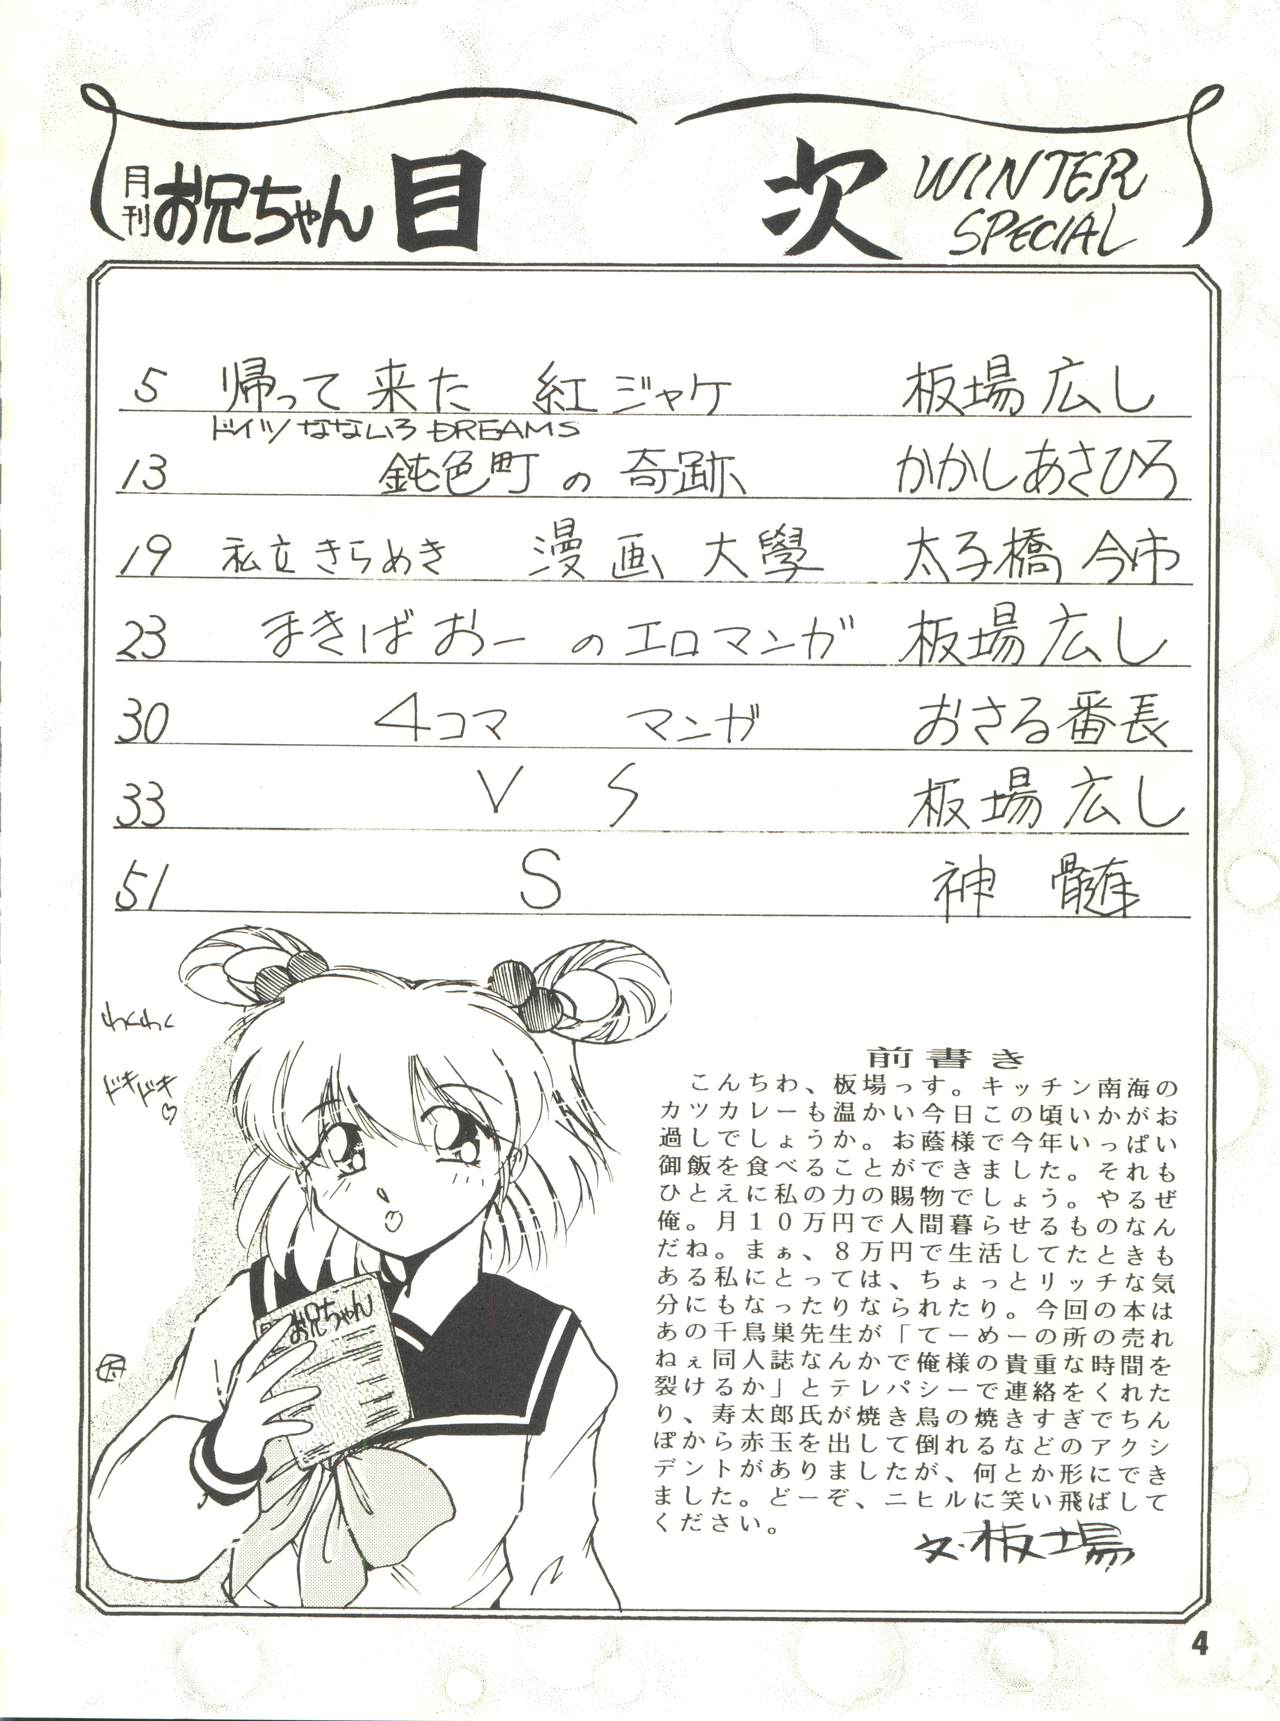 月刊 お兄ちゃん 目 次 WINTER SPECIAL
5 帰って来た 紅ジャケ 板場広し
ドイツなないろDREAMS
13 鈍色町の奇跡 かかしあさひろ
19 私立きらめき 漫画大學 太子橋今市
23 まきばおーのエロマンガ 板場広し
30 4コマ マンガ おさる番長
33 VS 板場広し
51 S 神髄
わくわく
ドキドキ♡
お兄ちゃん
前書き
こんちわ、板場っす。キッチン南海の
カツカレーも温かい今日この頃いかがお
過しでしょうか。お蔭様で今年いっぱい
御飯を食べることができました。それも
ひとえに私の力の賜物でしょう。やるぜ
俺。月10万円で人間暮らせるものなん
だね。まぁ、8万円で生活してたときも
ある私にとっては、ちょっとリッチな気
分にもなったりなられたり。今回の本は
あの千鳥巣先生が「てーめーの所の売れ
ねぇ同人誌なんかで俺様の貴重な時間を
裂けるか」とテレパシーで連絡をくれた
り、寿太郎氏が焼き鳥の焼きすぎでちん
ぽから赤玉を出して倒れるなどのアクシ
デントがありましたが、何とか形にでき
ました。どーぞ、ニヒルに笑い飛ばして
ください。
文・板場
4